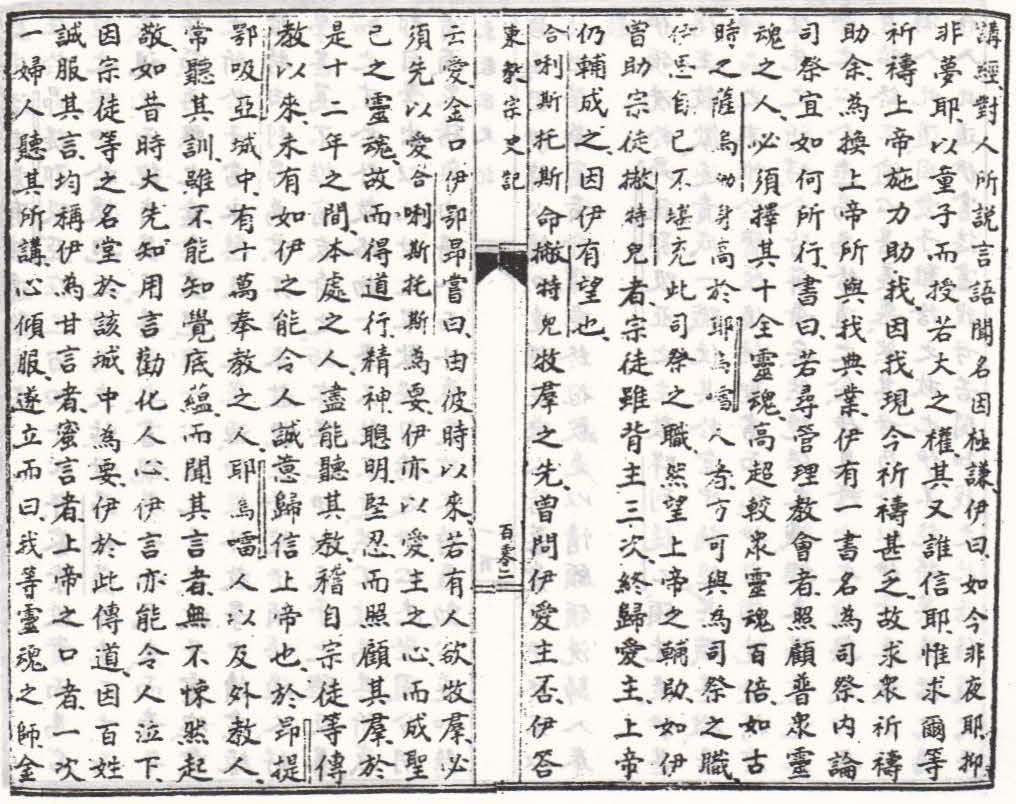 講經對人所說言語聞名因極謙伊曰如今非夜耶抑
非夢耶以童子而授若大之權其又誰信耶惟求爾等
祈禱上帝施力助我因我現今祈禱甚乏故求衆祈禱
助余為換上帝所與我典業伊有一書名為司祭內論
司祭宜如何所行書曰若尋管理教會者照顧普衆靈
魂之人必須擇其十全靈魂高超較衆靈魂百倍如古
時之薩烏泐身高於耶烏嚅人者方可與為司祭之職
自己不堪充此司祭之職然望上帝之輔助如伊
曾助宗徒撇特兒者宗徒雖背主三次終歸愛主上帝
仍輔成之因伊有望也
合唎斯托斯命撇特兒牧羣之先曾問伊愛主否伊答
東教宗史記
百零二
云愛金口伊鄂昂嘗曰由彼時以來若有人欲牧羣必
須先以愛合唎斯托斯為要伊亦以愛主之心而成聖
己之靈魂故而得道行精神聰明堅忍而照顧其羣於
是十二年之間本處之人盡能聽其教稽自宗徒等傳
教以來未有如伊之能令人誠意歸信上帝也於昂提
鄂吸亞城中有十萬奉教之人耶烏嚅人以及外教人
常聽其訓雖不能知覺底蘊而聞其言者無不悚然起
敬如昔時大先知用言勸化人心伊言亦能令人泣下
因宗徒等之名堂於該城中為要伊於此傳道因百姓
誠服其言均稱伊為甘言者蜜言者上帝之口者一次
一婦人聽其所講心傾服遂立而曰我等靈魂之師金